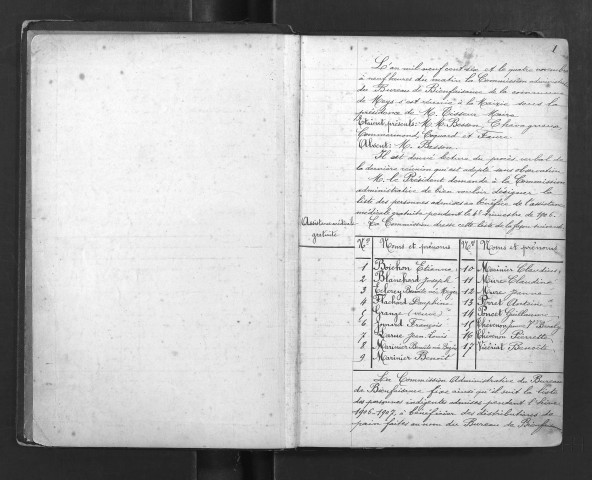 1
L'an mil neuf cent six et le quatre novembre
à neuf heures du matin la Commission administ
du Bureau de Bienfaisance de la commune
de Mays s'est réunie à la Mairie sous la
présidence de M. Tisseur Maire
Etaient présents: M. M. Besson, Chavagneux,
Commarmond, Coquard et Faure
Absent: M. Besson
Il est donné lecture du procès verbal de
la dernière réunion qui est adopté sans observation
M. le Président demande à la Commission
administrative de bien vouloir désigner la
liste des personnes admises au bénéfice de l'assistance
médicale gratuite pendant le 4e trimestre de 1906.
La Commission dresse cette liste de la façon suivante
Assistance médicale
gratuite
Nos Noms et prénoms Nos Noms et prénoms
1 Boichon Etienne 10 Marinier Claudius
2 Blanchard Joseph 11 Mure Claudine
3 Benoite née 12 Mure
4 Flachard Dauphin 13 Perret Antoine
5 Grange (veuve) 14 Poncet Guillaume
6 François 15 Thévenon
7 Jean Louis 16 Thévenon Pierrette
8 Marinier Benoite née 17 Benoite
9 Marinier Benoit
La Commission Administrative du Bureau
de Bienfaisance fixe ainsi qu'il suit la liste
des personnes indigentes admises pendant l'hiver
1906-1907, à bénéficier des distributions de
pain faites au nom du Bureau de Bienfais